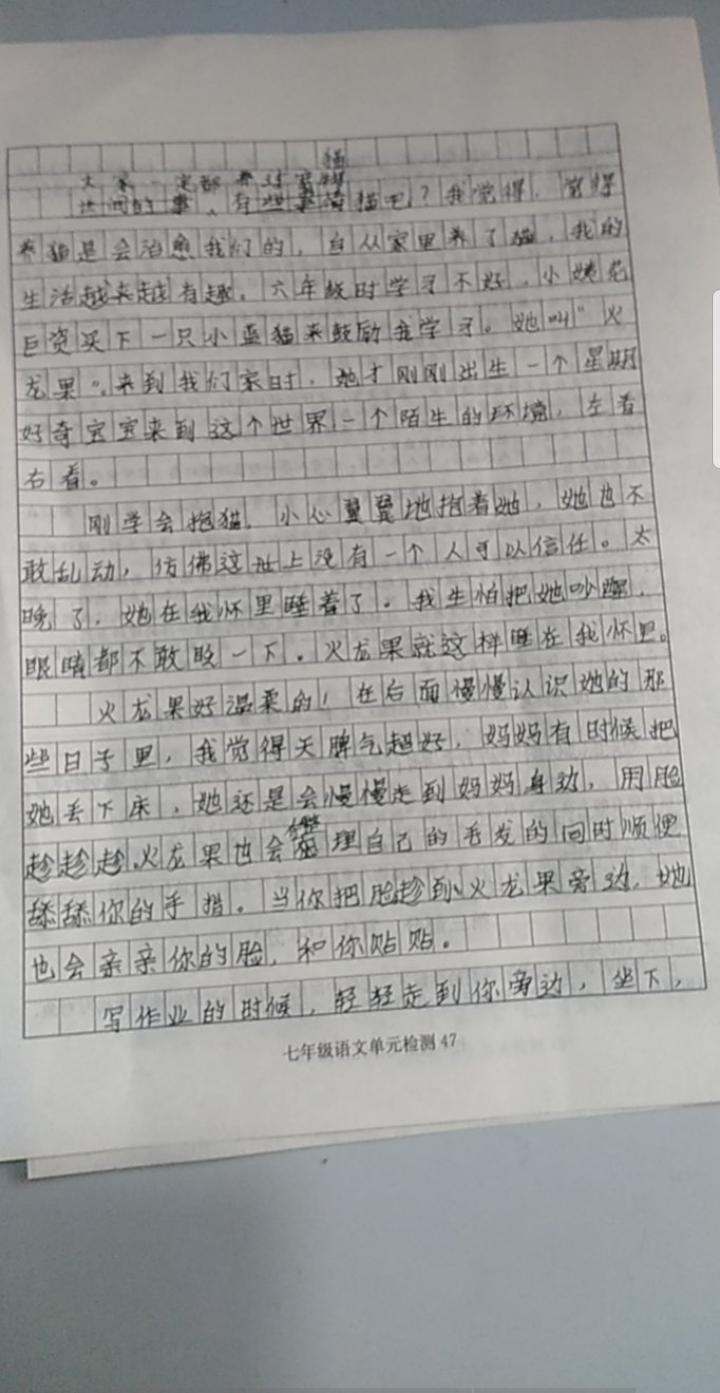 猫
大家一定都养过宠物
世间的事、有些事情猫吧？我觉得，觉得
养猫是会治愈我们的，自从家里养了猫，我的
生活越来越有趣。六年级时学习不好，小姨花
巨资买下一只小蓝猫来鼓励我学习。她叫"火
龙果"。来到我们家时，她才刚刚出生一个星期
好奇宝宝来到这个世界一个陌生的环境，左看
右看。
刚学会抱猫，小心翼翼地抱着她，她也不
敢乱动，仿佛这世上没有一个人可以信任。太
晚了，她在我怀里睡着了。我生怕把她吵醒，
眼睛都不敢眨一下。火龙果就这样睡在我怀里。
火龙果好温柔的！在后面慢慢认识她的那
些日子里，我觉得天脾气超好，妈妈有时候把
她丢下床，她还是会慢慢走到妈妈身边，用脸
趁趁趁。火龙果也会整理自己的毛发的同时顺便
舔舔你的手指。当你把脸趁到火龙果旁边，她
也会亲亲你的脸，和你贴贴。
写作业的时候，轻轻走到你旁边，坐下，
七年级语文单元检测 47